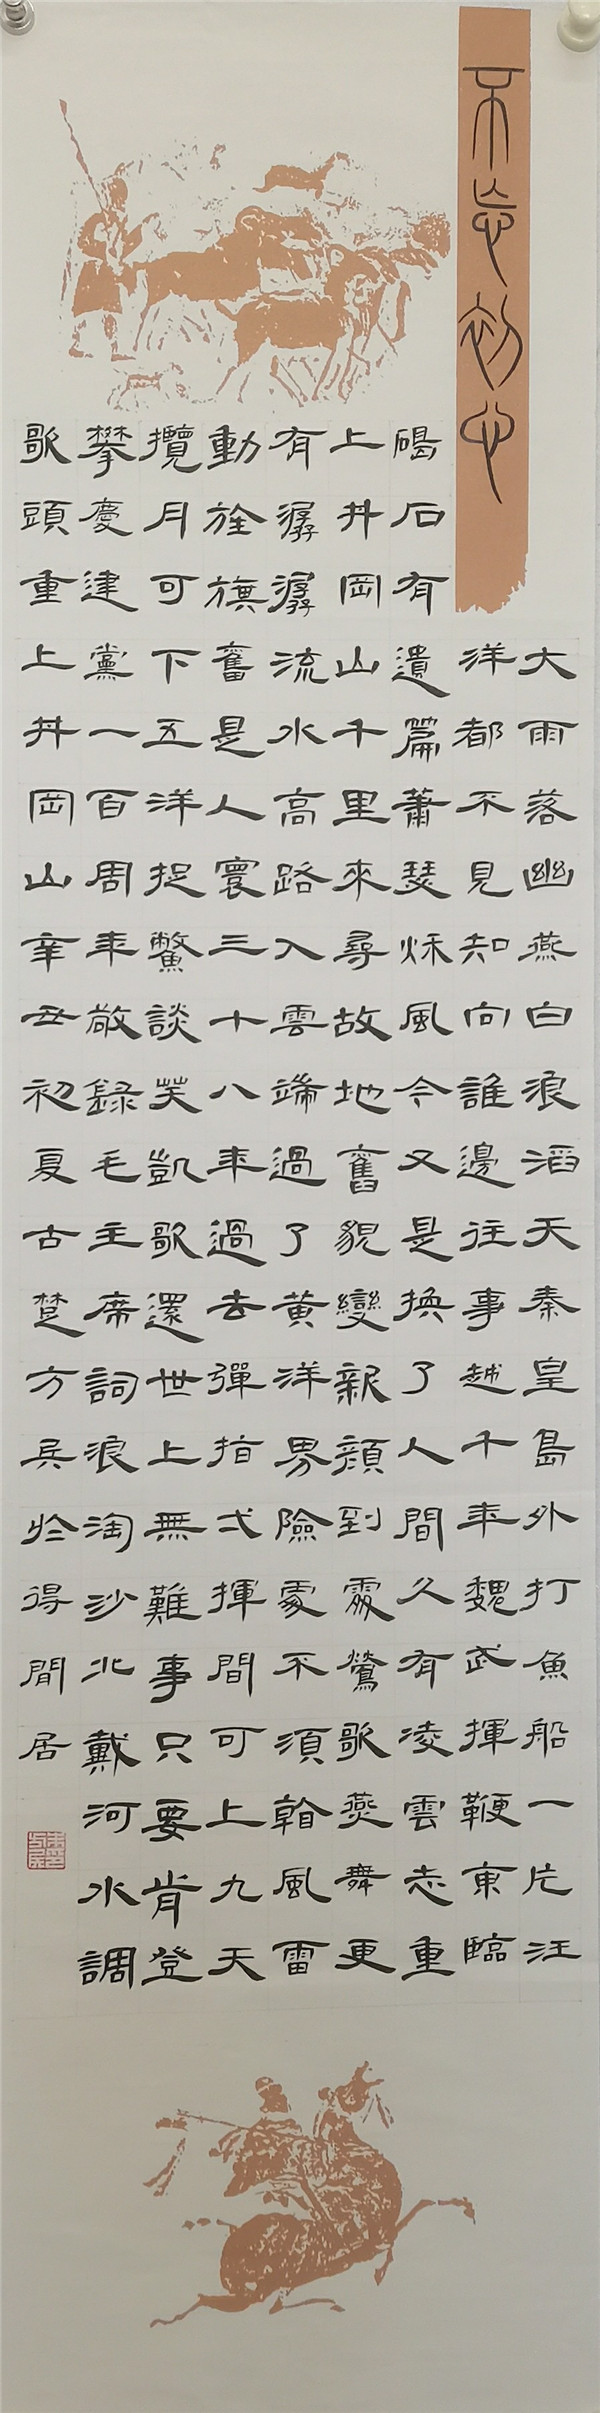 不忘初心
大雨落幽燕白浪滔天秦皇島外打魚船一片汪
洋都不見知向誰邊往事越千年魏武揮鞭東臨
碣石有遺篇蕭瑟秋風今又是換了人間久有凌雲志重
上井岡山千里來尋故地舊貌變新顏到處鶯歌燕舞更
有潺潺流水高路入雲端過了黃洋界險處不須看風雷
動旌旗奮是人寰三十八年過去彈指弌揮間可上九天
攬月可下五洋捉鱉談笑凱歌還世上無難事只要肯登
攀慶建黨一百周年敬錄毛主席詞浪淘沙北戴河水調
歌頭重上井岡山辛丑初夏古楚方兵於得閒居